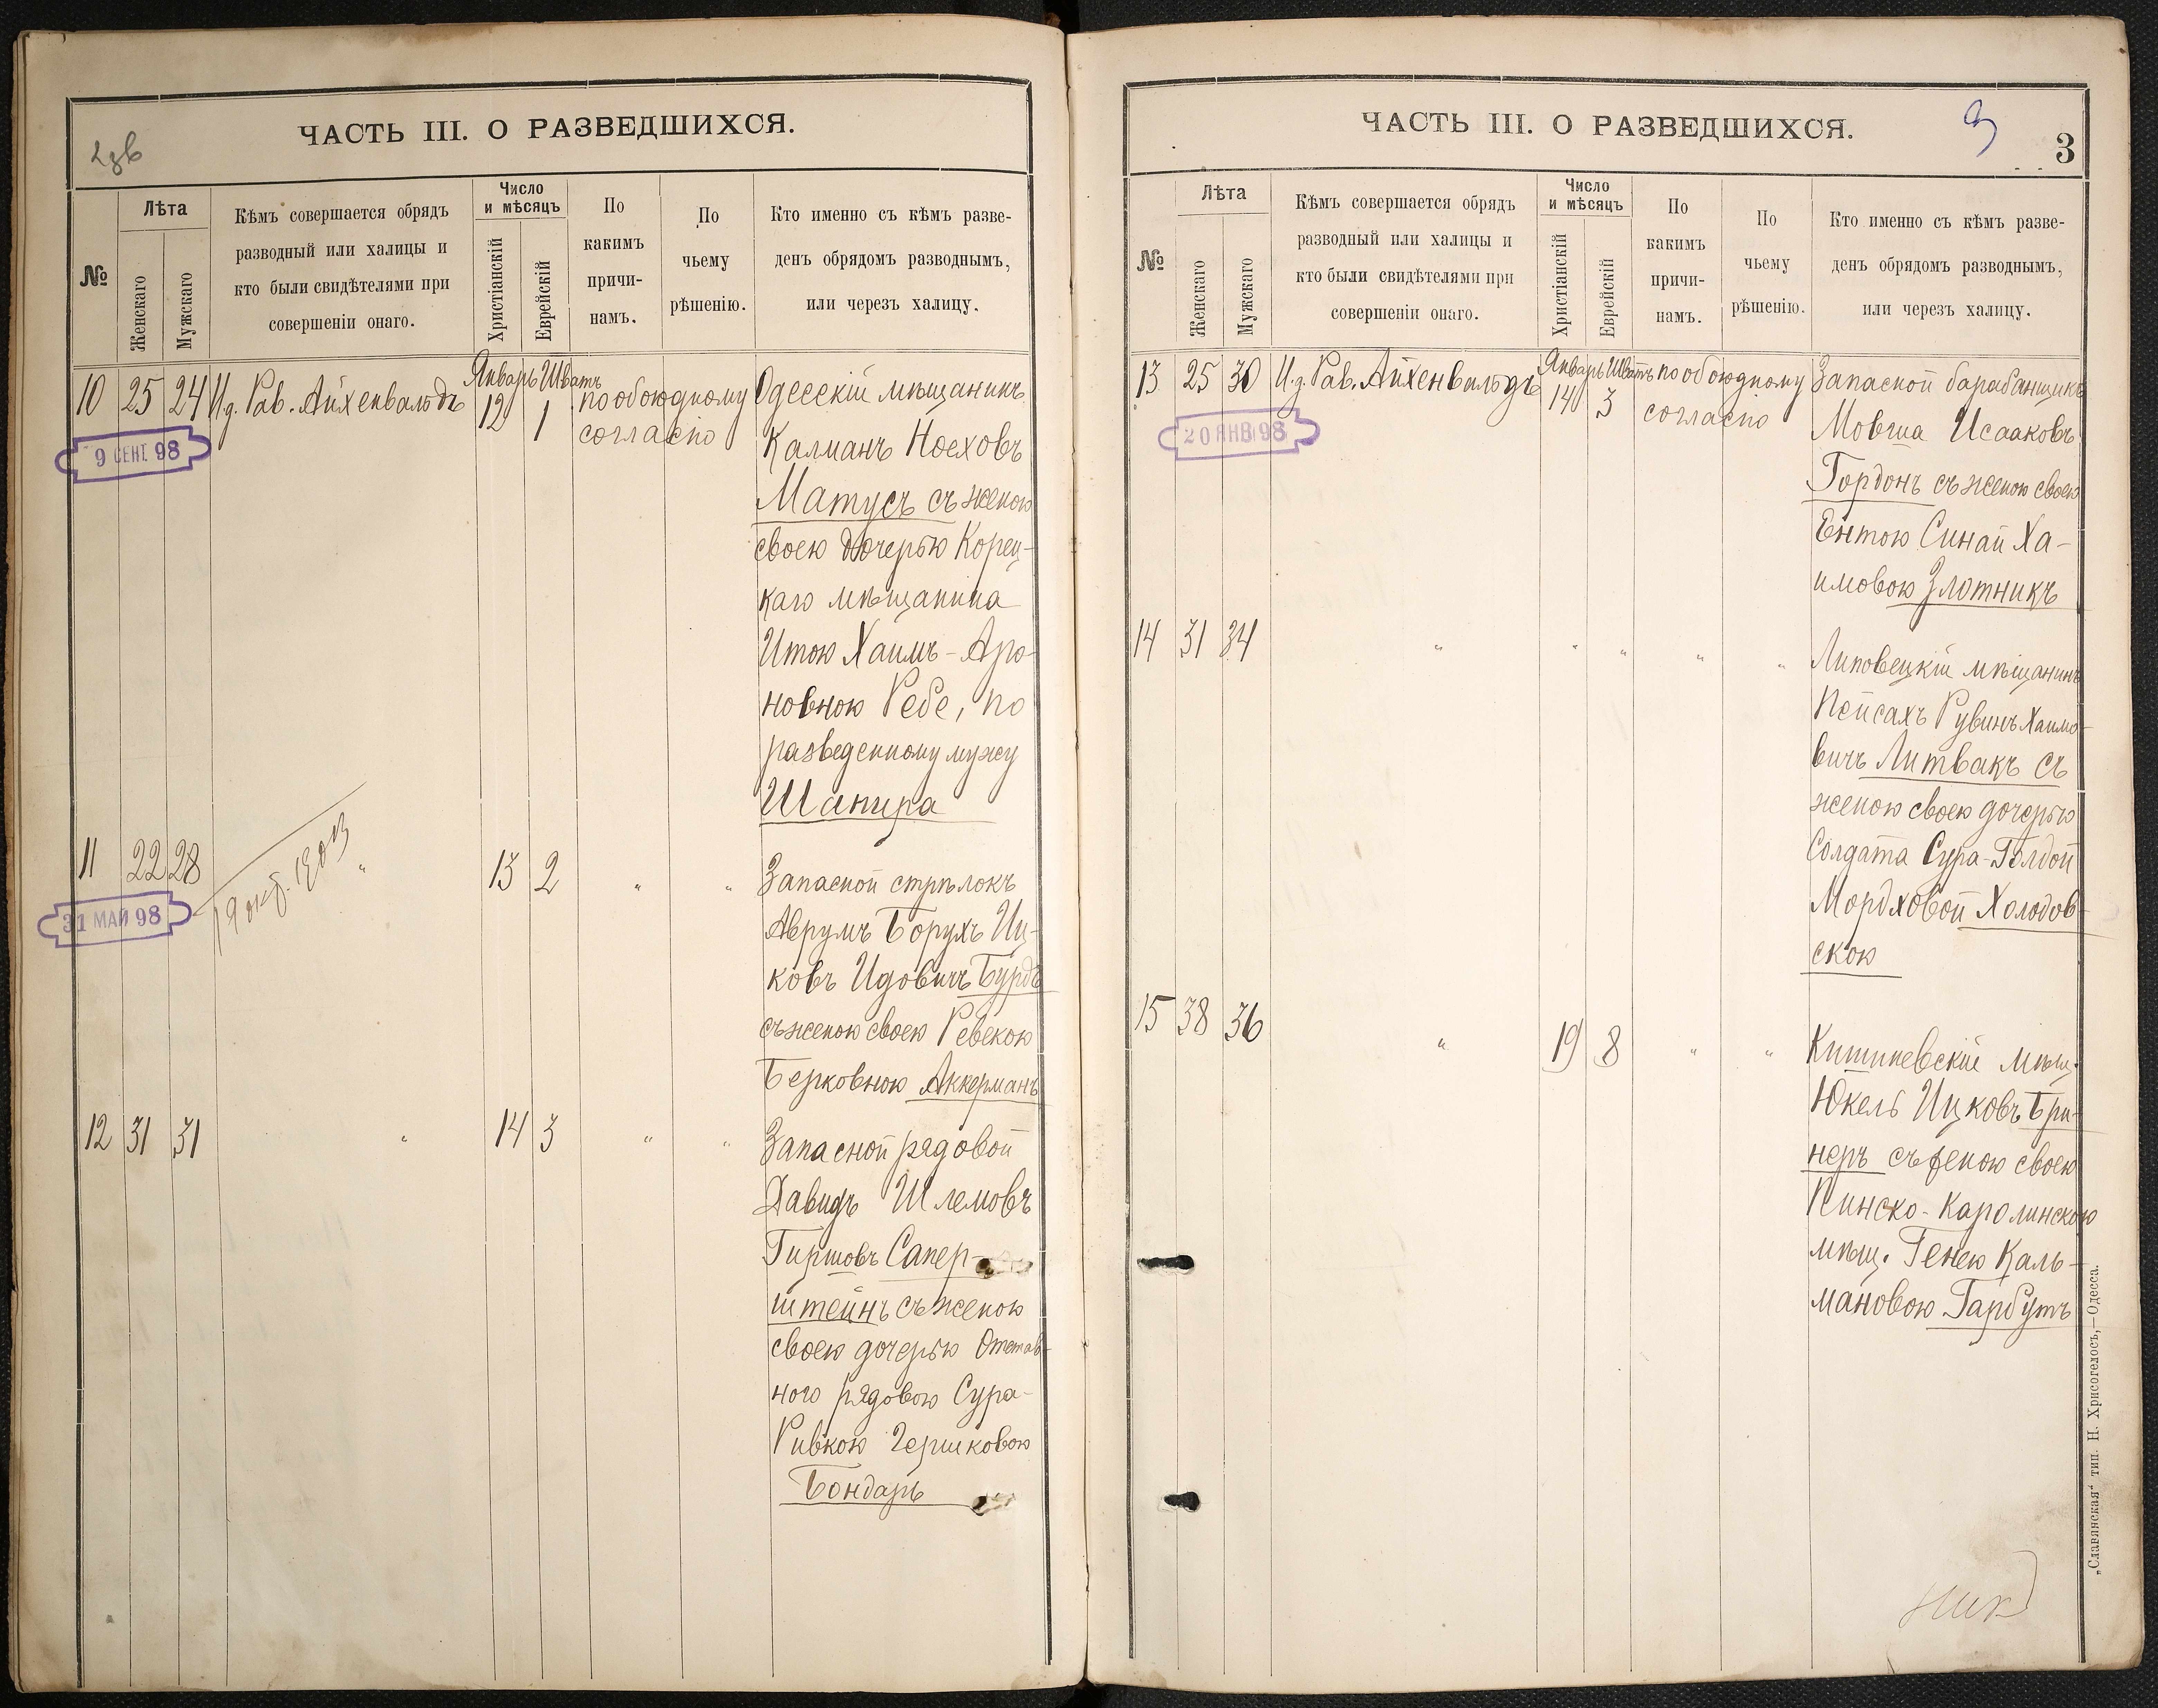 ЧАСТЬ III. О РАЗВЕДШИХСЯ.
№
Лѣта
Женскаго
Мужскаго
Кѣмъ совершается обрядъ
разводный или халицы и
кто были свидѣтелями при
совершеніи онаго.
Число
и мѣсяцъ
Христіанскій
Еврейскій
По
какимъ
причи-
намъ.
По
чьему
рѣшенію.
Кто именно съ кѣмъ разве-
денъ обрядомъ разводнымъ,
или черезъ халицу.
10 25 24 И. д. Рав. Айхенвальдъ Январь 12 Шватъ 1 по обоюдному
согласію
9 СЕНТ 98
Одесскій мѣщанинъ
Калманъ Ноеховъ
Матусъ съ женою
своею дочерью Корец-
каго мѣщанина
Итою Хаимъ-Аро-
новною Ребе, по
разведенному мужу
Шапира
11 22 28 " 13 2 " "
31 МАЙ 98
19 окт. 1903
Запасной стрѣлокъ
Аврумъ Борухъ Иц-
ковъ Идовичъ Бурдъ
съ женою своею Ревекою
Берковною Аккерманъ
12 31 31 " 14 3 " "
Запасной рядовой
Давидъ Шлемовъ
Гиршовъ Сапер-
штейнъ съ женою
своею дочерью Отстав-
ного рядовою Сура-
Ривкою Гершковою
Бондарь
ЧАСТЬ III. О РАЗВЕДШИХСЯ.
3
№
Лѣта
Женскаго
Мужскаго
Кѣмъ совершается обрядъ
разводный или халицы и
кто были свидѣтелями при
совершеніи онаго.
Число
и мѣсяцъ
Христіанскій
Еврейскій
По
какимъ
причи-
намъ.
По
чьему
рѣшенію.
Кто именно съ кѣмъ разве-
денъ обрядомъ разводнымъ,
или черезъ халицу.
13 25 30 И. д. Рав. Айхенвальдъ Январь 14 Шватъ 3 по обоюдному
согласію
20 ЯНВ 98
Запасной барабанщикъ
Мовша Исааковъ
Гордонъ съ женою своею
Ентою Синай Ха-
имовою Злотникъ
14 31 34 " " " " "
Липовецкій мѣщанинъ
Пейсахъ Рувинъ Хаимо-
вичъ Литвакъ съ
женою своею дочерью
Солдата Сура-Голдой
Мордховой Холодов-
скою
15 38 36 " 19 8 " "
Кишиневскій мѣщ.
Юкель Ицковъ Бри-
неръ съ женою своею
Пинско-Каролинскою
мѣщ. Генею Каль-
мановою Гарбутъ
„Славянская“ тип. Н. Хрисогелосъ,—Одесса.